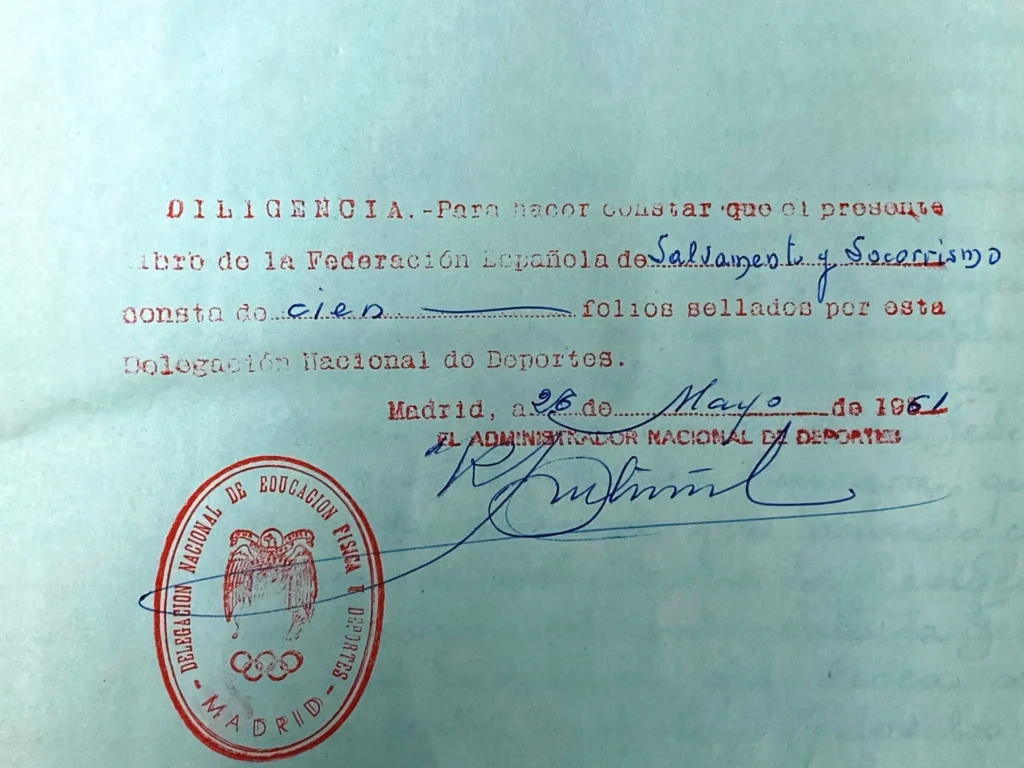 DILIGENCIA.-Para hacer constar que el presente
libro de la Federación Española de Salvamento y Socorrismo
consta de cien folios sellados por esta
Delegación Nacional de Deportes.
Madrid, a 26 de Mayo de 1961
EL ADMINISTRADOR NACIONAL DE DEPORTES
DELEGACION NACIONAL DE EDUCACION FISICA Y DEPORTES
- MADRID -